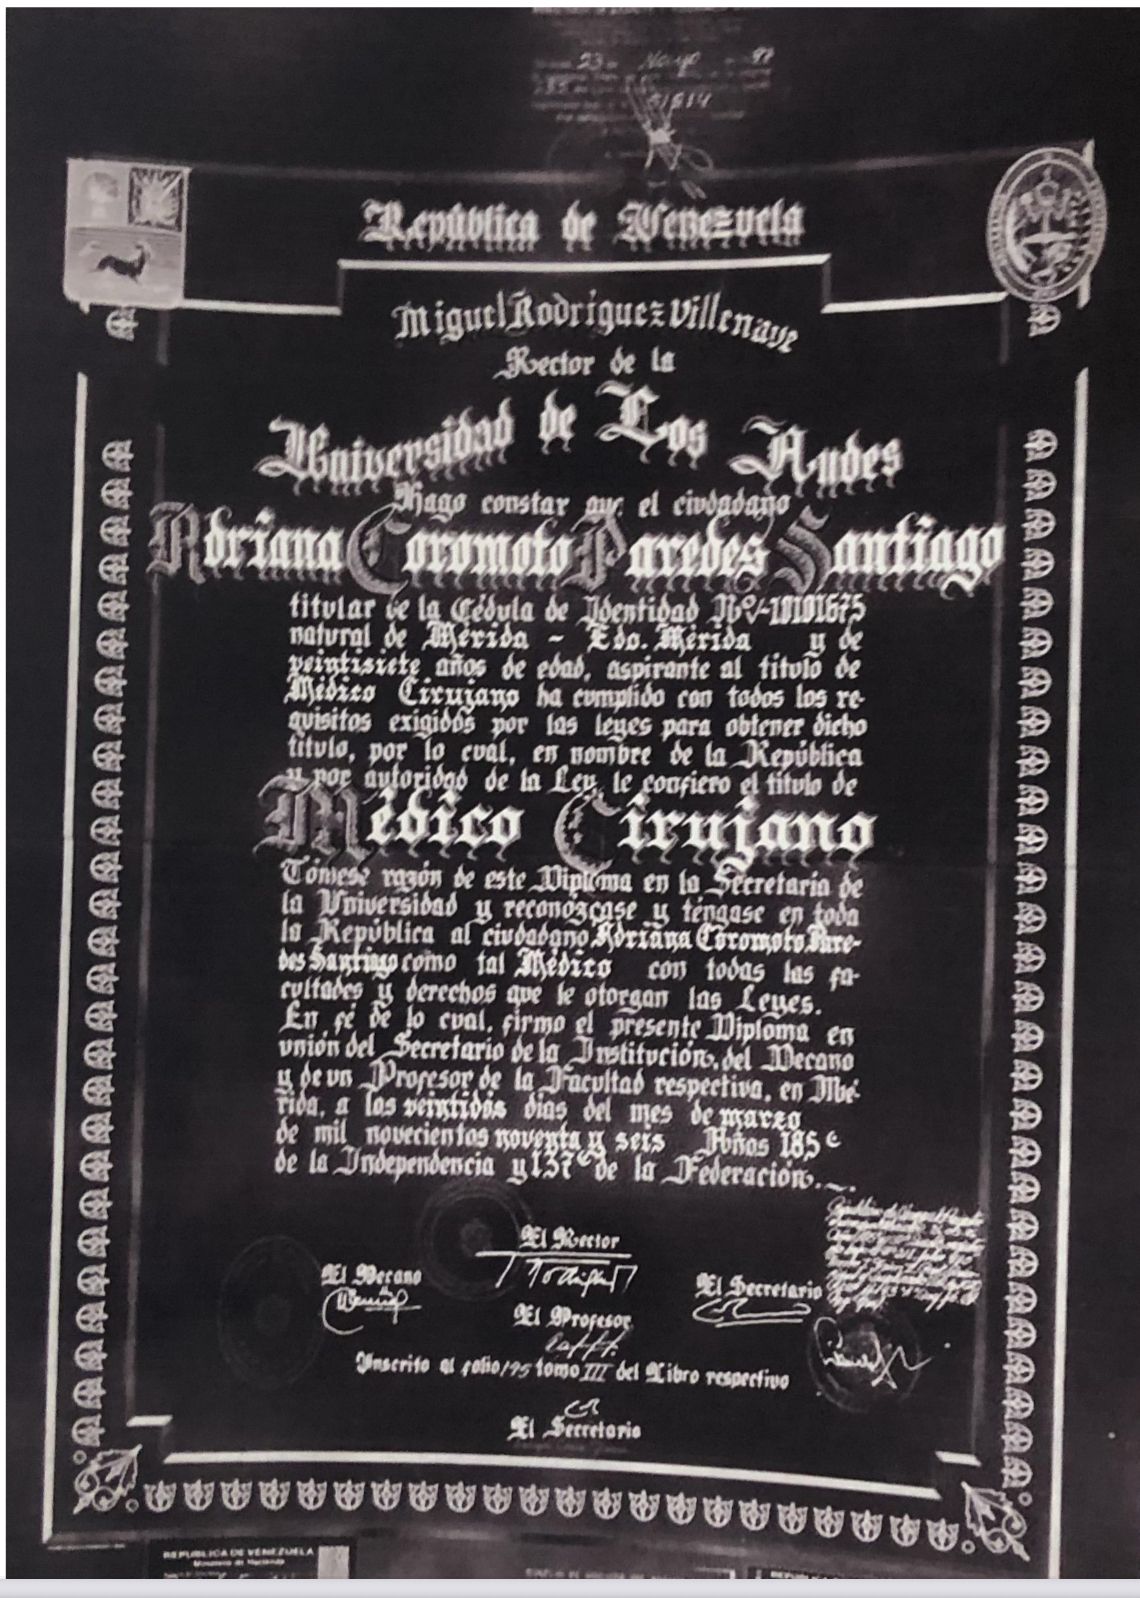 23 Mayo
31814
República de Venezuela
Miguel Rodríguez Villenave
Rector de la
Universidad de Los Andes
Hago constar que el ciudadano
Adriana Coromoto Paredes Santiago
titular de la Cédula de Identidad Nº V-10101675
natural de Mérida - Edo. Mérida y de
veintisiete años de edad, aspirante al título de
Médico Cirujano ha cumplido con todos los re-
quisitos exigidos por las leyes para obtener dicho
título, por lo cual, en nombre de la República
y por autoridad de la Ley, le confiero el título de
Médico Cirujano
Tómese razón de este Diploma en la Secretaría de
la Universidad y reconózcase y téngase en toda
la República al ciudadano Adriana Coromoto Pare-
des Santiago como tal Médico con todas las fa-
cultades y derechos que le otorgan las Leyes.
En fé de lo cual, firmo el presente Diploma en
unión del Secretario de la Institución, del Decano
y de un Profesor de la Facultad respectiva, en Mé-
rida, a los veintidós días del mes de marzo
de mil novecientos noventa y seis Años 185º
de la Independencia y 137º de la Federación.
El Rector
El Decano
El Secretario
El Profesor
Inscrito al folio 195 tomo III del Libro respectivo
El Secretario
REPUBLICA DE VENEZUELA
Ministerio de Hacienda